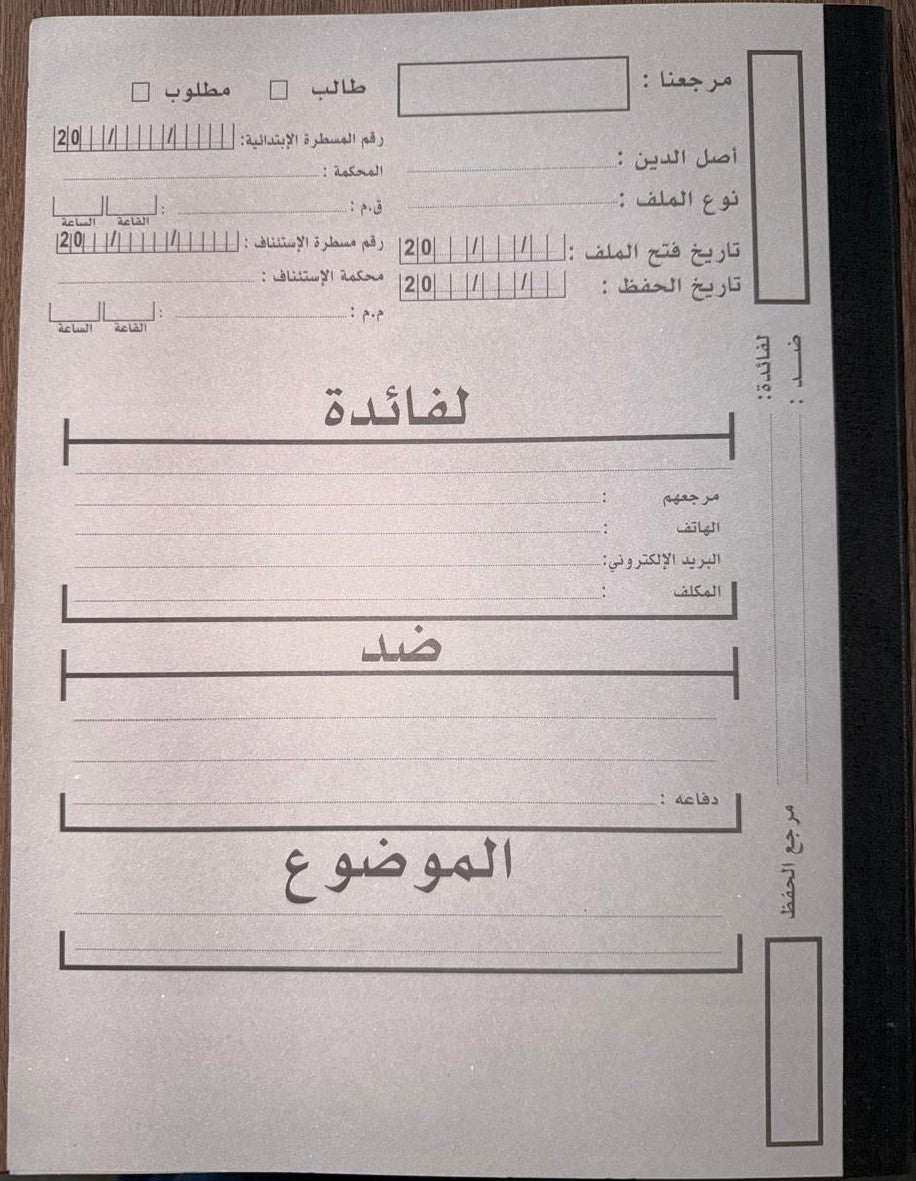 مرجعنا :
طالب □ مطلوب □
رقم المسطرة الإبتدائية: / / 20
أصل الدين :
المحكمة :
نوع الملف :
ق.م : :
القاعة الساعة
تاريخ فتح الملف : / / 20
رقم مسطرة الإستئناف : / / 20
تاريخ الحفظ : / / 20
محكمة الإستئناف :
م.م : :
القاعة الساعة
لفائدة
مرجعهم :
الهاتف :
البريد الإلكتروني:
المكلف :
ضد
دفاعه :
الموضوع
لفائدة:
ضــد :
مرجع الحفظ